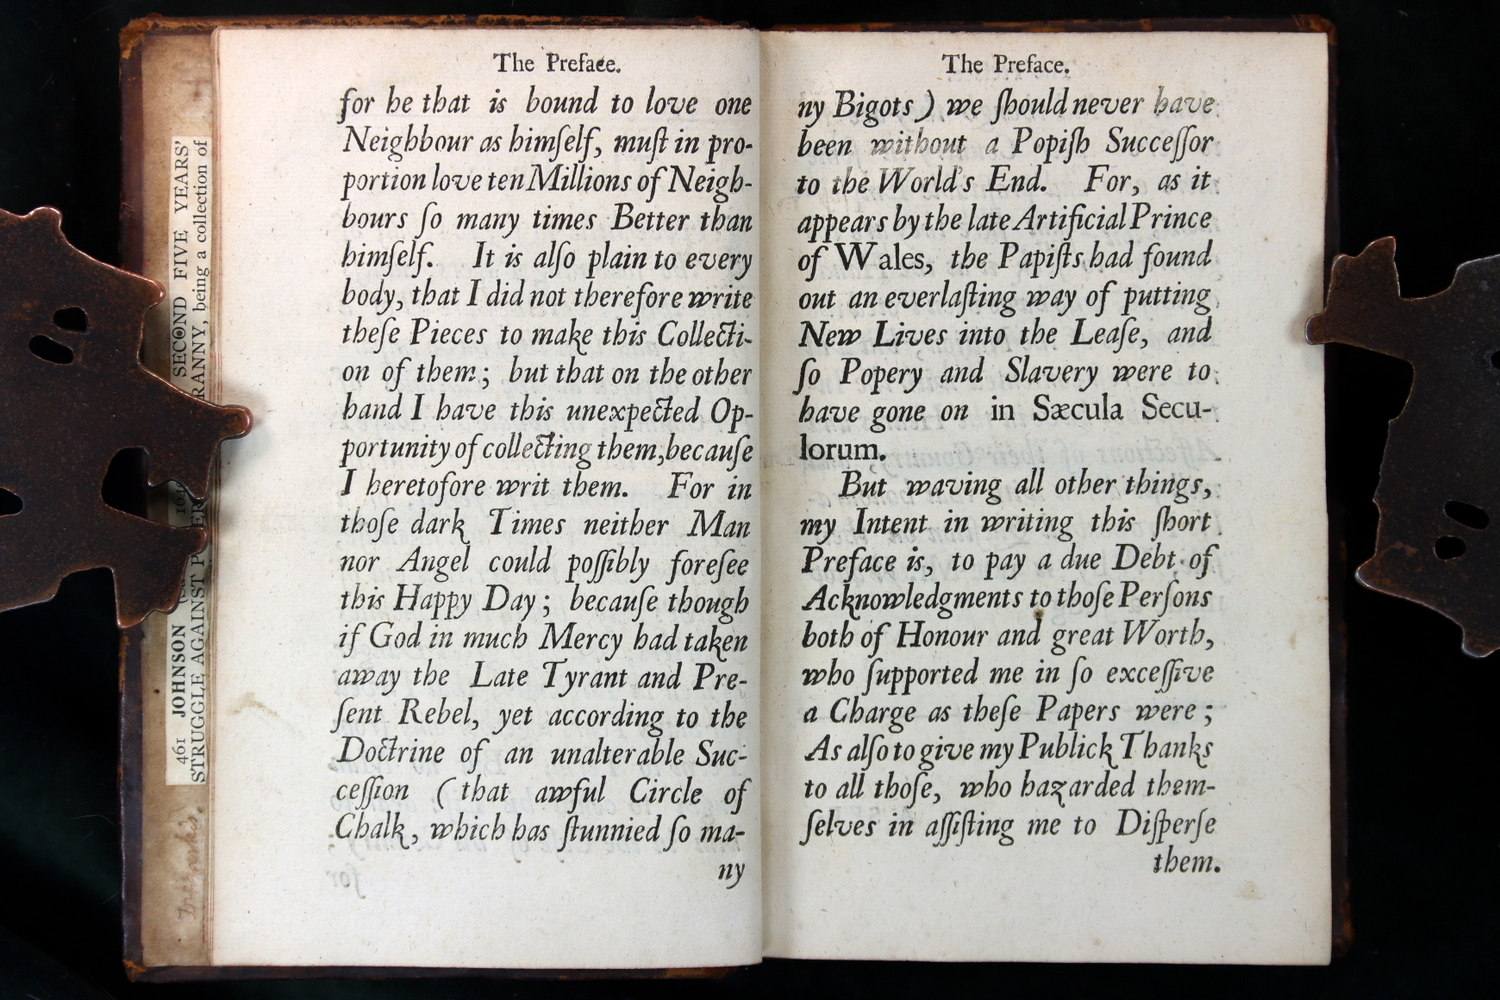 The Preface.
for he that is bound to love one
Neighbour as himſelf, muſt in pro-
portion love ten Millions of Neigh-
bours ſo many times Better than
himſelf. It is alſo plain to every
body, that I did not therefore write
theſe Pieces to make this Collecti-
on of them; but that on the other
hand I have this unexpected Op-
portunity of collecting them, becauſe
I heretofore writ them. For in
thoſe dark Times neither Man
nor Angel could poſſibly foreſee
this Happy Day; becauſe though
if God in much Mercy had taken
away the Late Tyrant and Pre-
ſent Rebel, yet according to the
Doctrine of an unalterable Suc-
ceſſion (that awful Circle of
Chalk, which has ſtunnied ſo ma-
ny
The Preface.
ny Bigots) we ſhould never have
been without a Popiſh Succeſſor
to the World's End. For, as it
appears by the late Artificial Prince
of Wales, the Papiſts had found
out an everlaſting way of putting
New Lives into the Leaſe, and
ſo Popery and Slavery were to
have gone on in Sæcula Secu-
lorum.
But waving all other things,
my Intent in writing this ſhort
Preface is, to pay a due Debt of
Acknowledgments to thoſe Perſons
both of Honour and great Worth,
who ſupported me in ſo exceſſive
a Charge as theſe Papers were;
As alſo to give my Publick Thanks
to all thoſe, who hazarded them-
ſelves in aſſiſting me to Diſperſe
them.
461 JOHNSON SECOND FIVE YEARS'
STRUGGLE AGAINST being a collection of